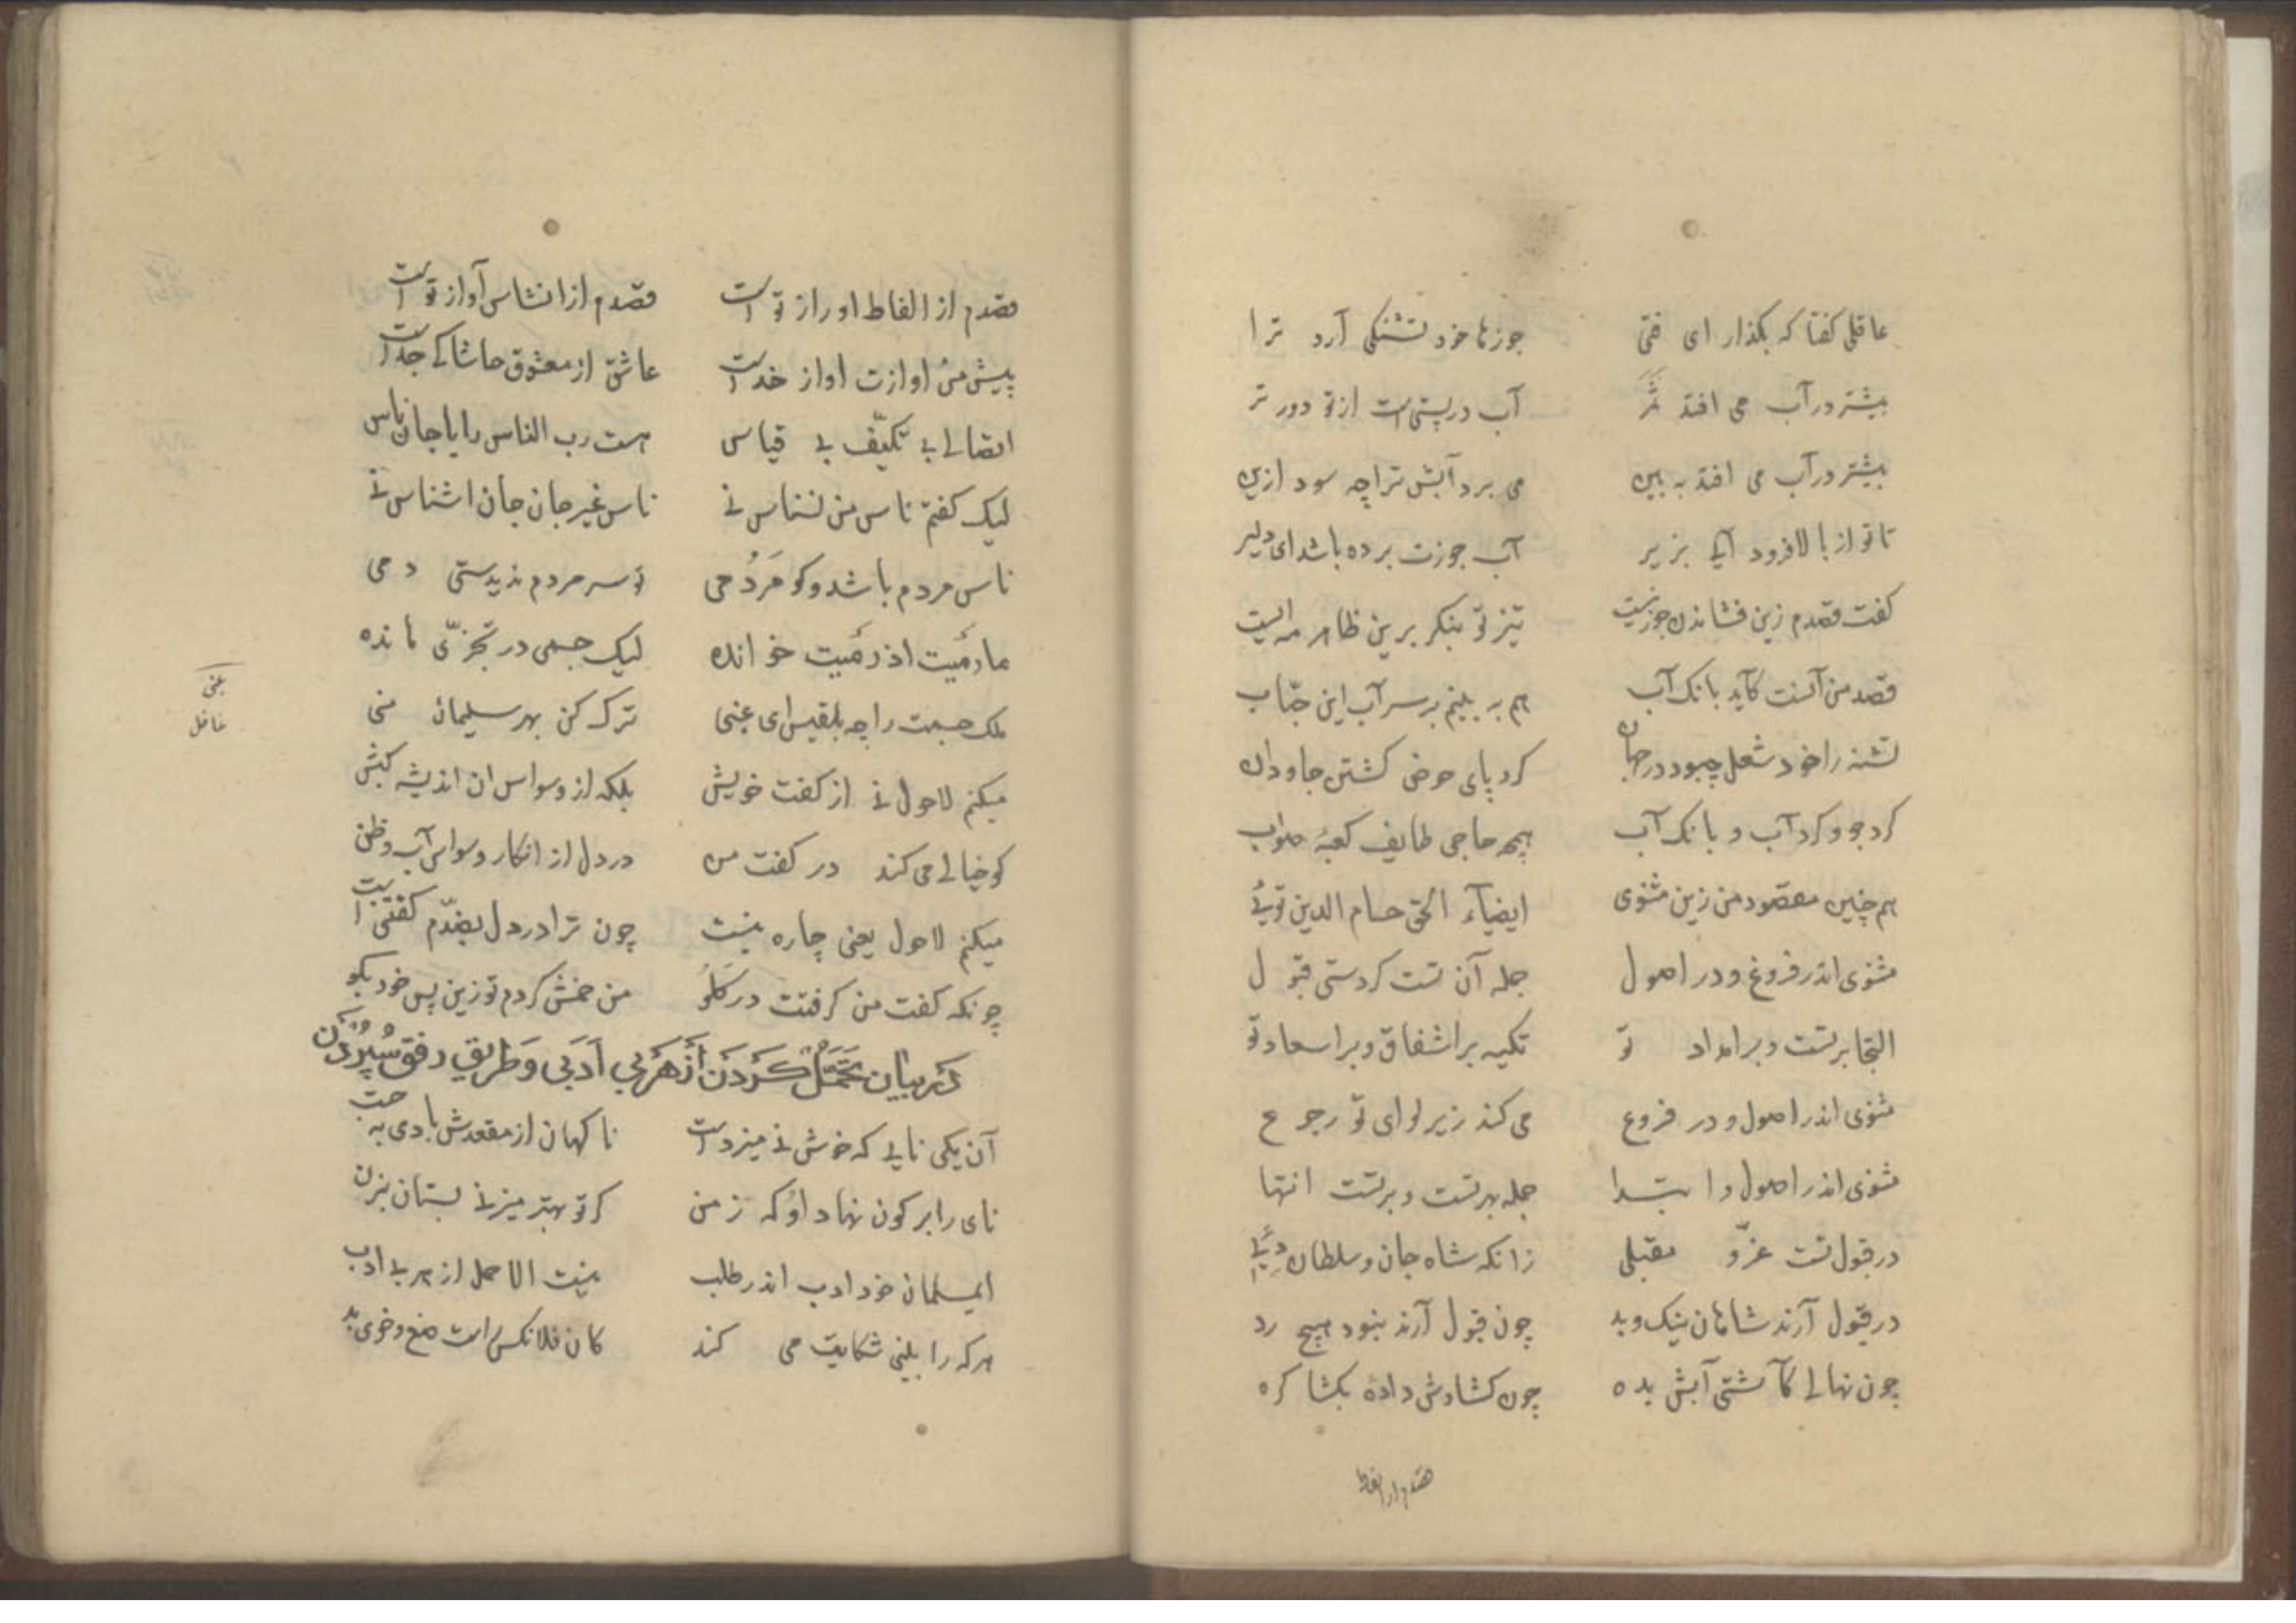 عاقلی کفتا که بکذار ای فتی جوزها خود تشنکی آرد ترا
بیشتر در آب می افتد ثمر آب در پستی است از تو دور تر
بیشتر در آب می افتد به بین می برد آبش ترا چه سود ازین
تا تو از بالا فرود آیی بزیر آب جوزت برده باشد ای دلیر
کفت قصدم زین فشاندن جوز نیست تیز تو بنکر برین ظاهر مه ایست
قصد من آنست کآید بانک آب هم به بینم بر سر آب این حباب
تشنه را خود شغل چبود در جهان کرد پای حوض کشتن جاودان
کرد جو و کرد آب و بانک آب همچو حاجی طایف کعبهٔ صواب
هم چنین مقصود من زین مثنوی ایضیآء الحق حسام الدین تویی
مثنوی اندر فروع و در اصول جمله آن تست کردستی قبول
التجا برتست و بر امداد تو تکیه بر اشفاق و بر اسعاد تو
مثنوی اندر اصول و در فروع می کند زیر لوای تو رجوع
مثنوی اندر اصول و ابتدا جمله بهر تست و برتست انتها
در قبول تست عزّ و مقبلی زانکه شاه جان و سلطان
در قبول آرند شاهان نیک و بد چون قبول آرند نبود هیچ رد
چون نهالی کآشتی آبش بده چون کشادش دادهٔ بکشا کره
قصدم از الفاظ
قصدم از الفاظ او راز تو است قصدم از انشاس آواز تو است
پیش من اوازت اواز خداست عاشق از معشوق حاشا کی جداست
اتصالی بی تکیّف بی قیاس هست رب الناس را با جان ناس
لیک کفتم ناس من نسناس نی ناس غیر جان جان اشناس نی
ناس مردم باشد و کو مَردُمی تو سر مردم ندیدستی دمی
ما رَمَیت اذ رَمَیت خوانده لیک جسمی در تجزّی مانده
ملک جسمت را چو بلقیس ای غبی ترک کن بهر سلیمان نبی
میکنم لاحول نی از کفت خویش بلکه از وسواس ان اندیشه کیش
کو خیالی می کند در کفت من در دل از انکار و سواس آب و ظن
میکنم لاحول یعنی چاره نیست چون ترا در دل بضدّم کفتنی است
چونکه کفت من کرفتت در کلو من خمش کردم تو زین پس خود بکو
در بیان تحمّل کردن از هر بی ادبی و طریق رفق سپردن
آن یکی نایی که خوش نی میزدست ناکهان از مقعدش بادی به جست
نای را بر کون نهاد او که ز من کر تو بهتر میزنی بستان بزن
ایمسلمان خود ادب اندر طلب نیست الا حمل از هر بی ادب
هر که را بینی شکایت می کند کان فلانکس راست طبع و خوی بد
غافل